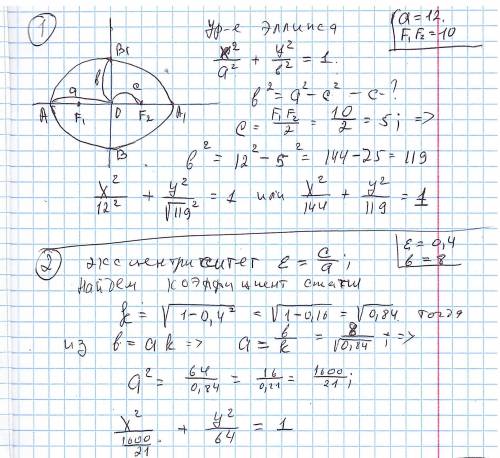 1
Ур-е эллипса
a = 12.
F₁F₂ = 10
x²/a² + y²/b² = 1.
b² = a² - c² - c - ?
c = F₁F₂/2 = 10/2 = 5; =>
b² = 12² - 5² = 144 - 25 = 119
B₁
a b c
A F₁ O F₂ A₁
B
x²/12² + y²/√119² = 1 или x²/144 + y²/119 = 1
2 эксцентриситет ε = c/a;
ε = 0,4
b = 8
Найдем коэффициент сжатия
k = √1-0,4² = √1-0,16 = √0,84 тогда
из b = ak => a = b/k = 8/√0,84; =>
a² = 64/0,84 = 16/0,21 = 1600/21;
x²/1600/21 + y²/64 = 1